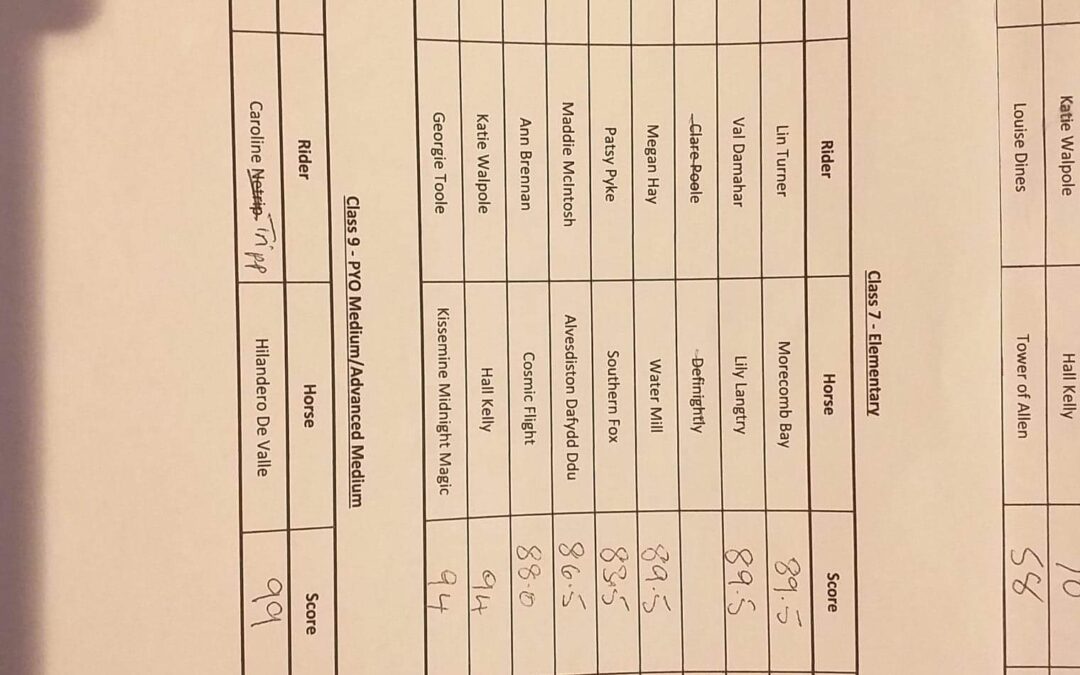 Katie Walpole Hall Kelly
Louise Dines Tower of Allen 58
Class 7 - Elementary
Rider Horse Score
Lin Turner Morecomb Bay 89.5
Val Damahar Lily Langtry 89.5
Clare Poole Definightly
Megan Hay Water Mill 89.5
Patsy Pyke Southern Fox 83.5
Maddie McIntosh Alvesdiston Dafydd Ddu 86.5
Ann Brennan Cosmic Flight 88.0
Katie Walpole Hall Kelly 94
Georgie Toole Kissemine Midnight Magic 94
Class 9 - PYO Medium/Advanced Medium
Rider Horse Score
Caroline Tripp Hilandero De Valle 99